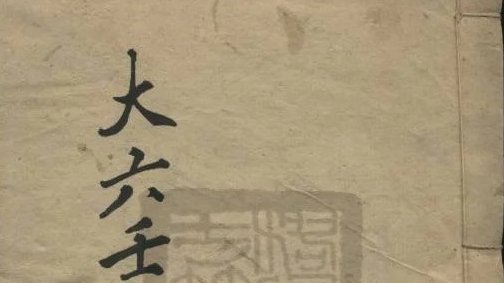 大六壬